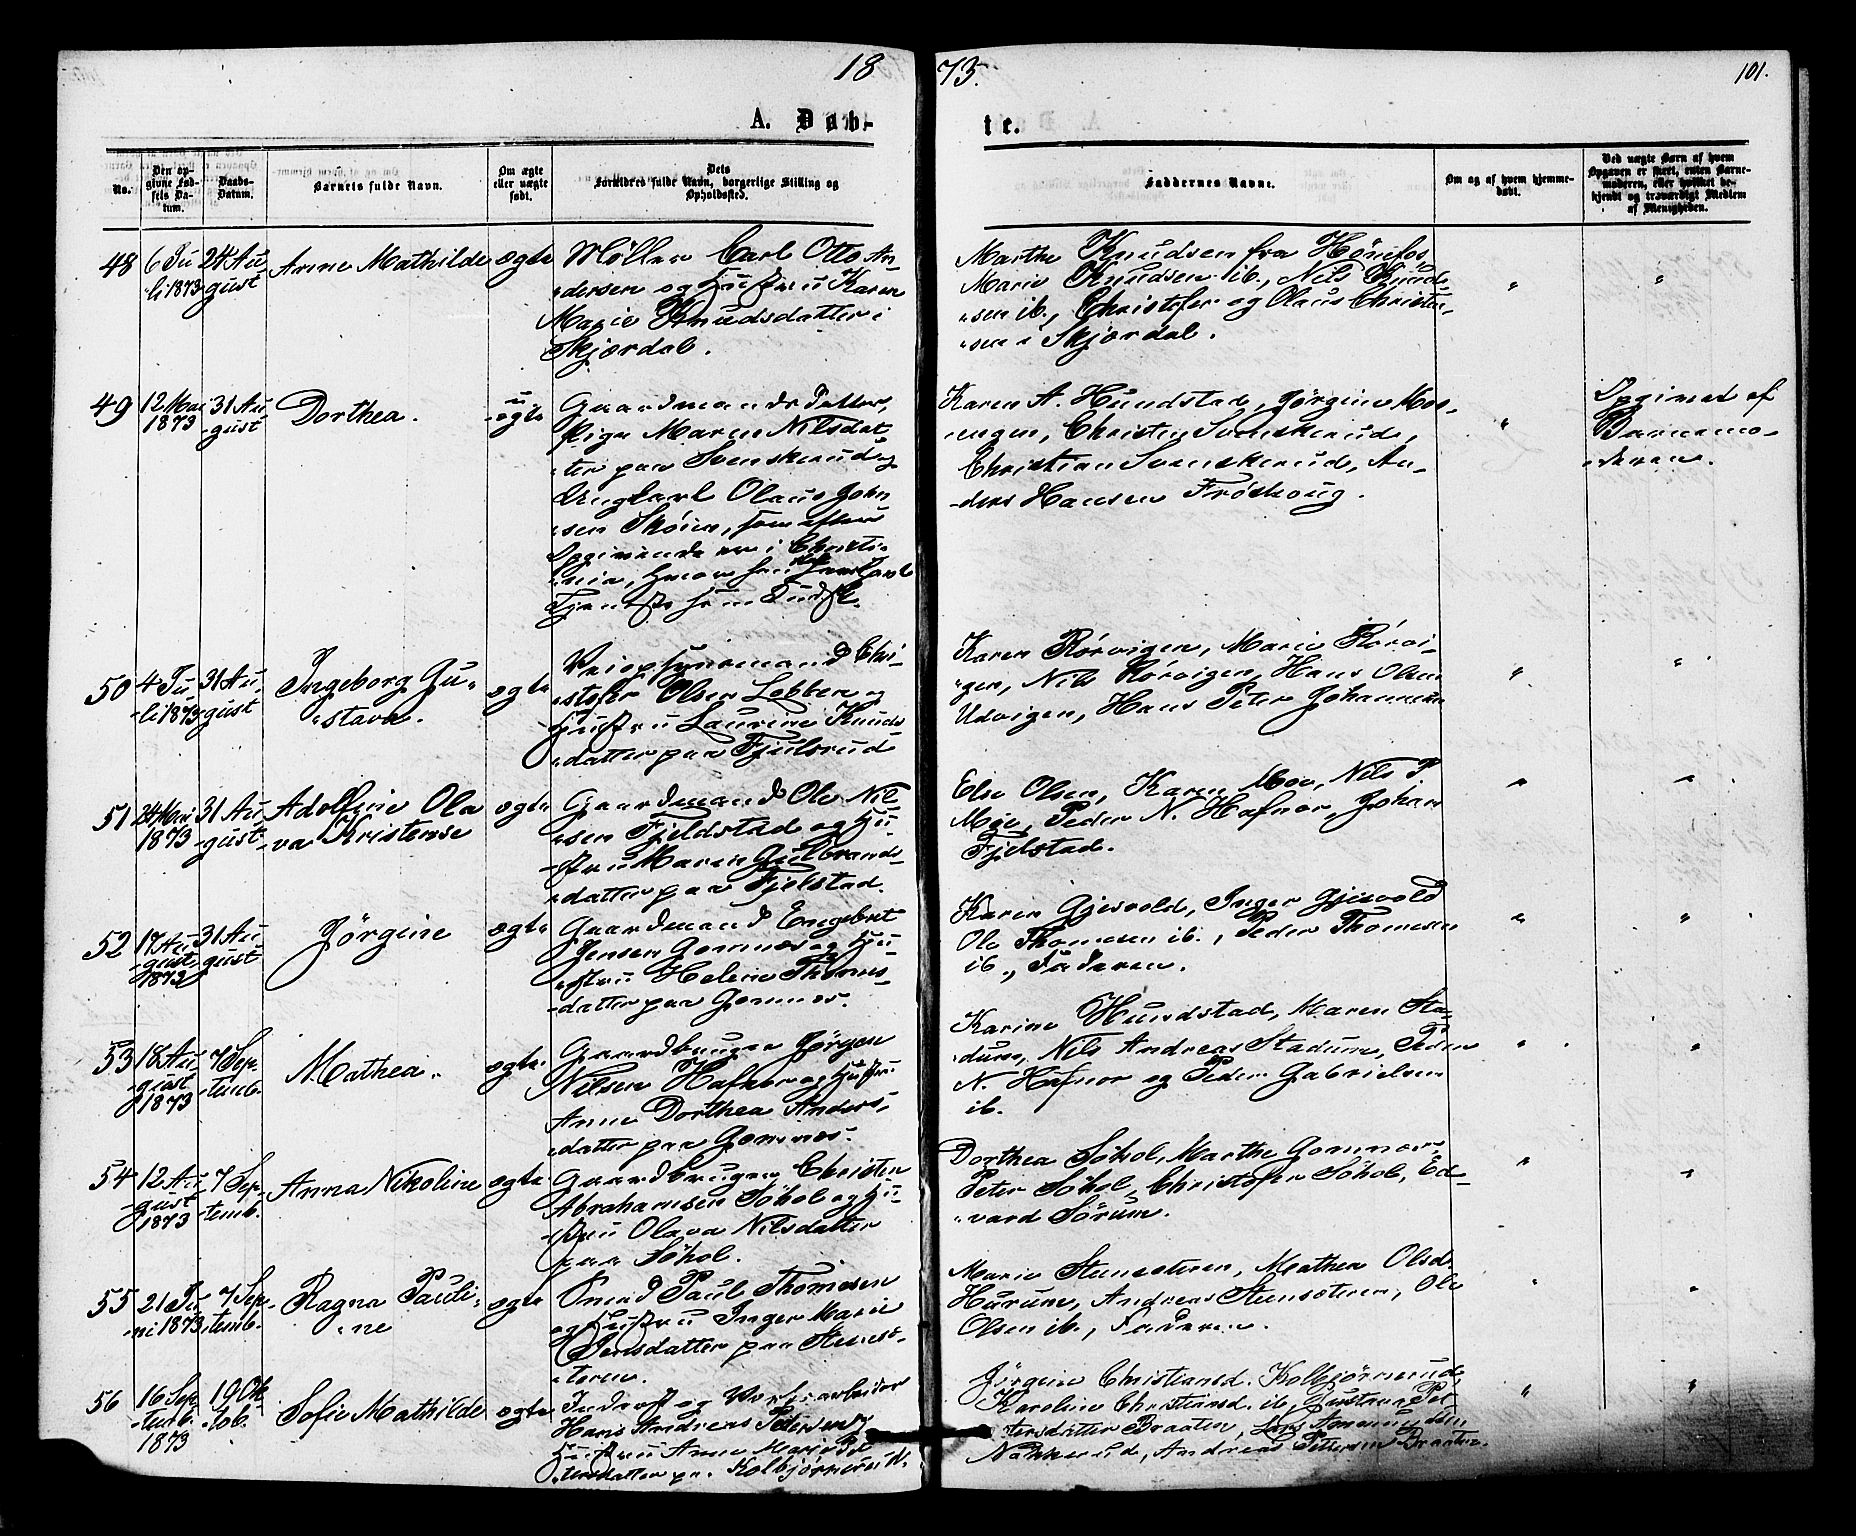 18 73. 101.
A. Døb- te.
No.
Den op-
givne Fød-
sels Da-
tum.
Daabs-
Datum.
Barnets fulde Navn.
Om ægte
eller uægte
født.
Dets
Forældres fulde Navn, borgerlige Stilling og
Opholdssted.
Faddernes Navne.
Om og af hvem hjemme-
døbt.
Ved uægte Børn af hvem
Opgaven er skeet, enten Barne-
moderen, eller hvilket be-
kjendt og troværdigt Medlem
af Menigheden.
48
6 Ju
li 1873
24 Au
gust
Anne Mathilde
ægte
Møller Carl Otto An
dersen og Hustru Karen
Marie Knudsdatter i
Skjærdal.
Marthe Knudsen fra Hønefos
Marie Knudsen ib., Nils Knud-
sen ib., Christofer og Olaus Christen-
sen i Skjærdal.
"
"
49
12 Mai
1873
31 Au
-gust
Dorthea.
u-
-ægte
Gaardmands Datter,
Pige Maren Nilsdat
ter paa Svenskerud og
Ungkarl Olaus John
sen Skøien, som efter
Opgivende er i Christi-
ania,
Karen A. Hundstad, Jørgine Mos-
engen, Christen Svenskerud,
Christian Svenskerud, An-
-ders Hansen Frøshoug.
"
Opgivet af
Barnemo-
deren.
50
4 Ju
-li 1873
31 Au
gust
Ingeborg Gu-
stava.
ægte
Chri-
stofer Olsen Lebben og
Hustru Laurine Knuds
datter paa Fjulsrud
Karen Rørvigen, Marie Rørvi-
gen, Nils Rørvigen, Hans Olsen
Udvigen, Hans Peter Johannesen
"
"
51
24 Mai
1873
31 Au
-gust
Adolfine Ola
va Kristense
ægte
Gaardmand Ole Nil
sen Fjeldstad og Hu-
stru Maren Gulbrands-
datter paa Fjelstad.
Else Olsen, Karen Moe, Nils P.
Moe, Peder N. Hafnor, Johan
Fjelstad.
"
"
52
17 Au
-gust
1873
31 Au
gust
Jørgine
ægte
Gaardmand Engebret
Jensen Gomnæs og Hu
stru Helene Thomes-
datter paa Gomnæs.
Karen Gjesvold, Inger Gjesvold
Ole Thomesen ib., Peder Thomesen
ib., Faderen.
"
"
53
18 Au
gust
1873
7 Sep
temb.
Mathea.
ægte
Gaardbruger Jørgen
Nilsen Hafnor og Hustru
Anne Dorthea Anders-
datter paa Gomnæs.
Karine Hundstad, Maren Sta-
dum, Nils Andreas Stadum, Peder
N. Hafnor og Peder Gabrielsen
ib.
"
"
54
12 Au
gust
1873
7 Sep
temb.
Anna Nikoline
ægte
Gaardbruger Christen
Abrahamsen Søhol og Hu-
stru Olava Nilsdatter
paa Søhol.
Dorthea Søhol, Marthe Gomnæs,
Peter Søhol, Christofer Søhol, Ed-
vard Sørum.
"
"
55
21 Ju
ni 1873
7 Sep
temb.
Ragna Pauli-
ne
ægte
Smed Paul Thomesen
og Hustru Inger Marie
Iversdatter paa Stensæ-
teren.
Marie Stensæteren, Mathea Olsd.
Hurum, Andreas Stensæteren, Ole
Olsen ib., Faderen.
"
"
56
16 Sep
temb.
1873
19 Ok
tob.
Sofie Mathilde
ægte
Inderst og Verksarbeider
Hans Andreas Pedersen og
Hustru Anne Marie Pet
tersdatter pa. Kolbjørnerud.
Jørgine Christiansd. Kolbjørnerud,
Karoline Christiansd. ib., Gustava Pet
tersdatter Braaten, Lars Amundsen
Nakkerud, Andreas Pettersen Braaten.
"
"